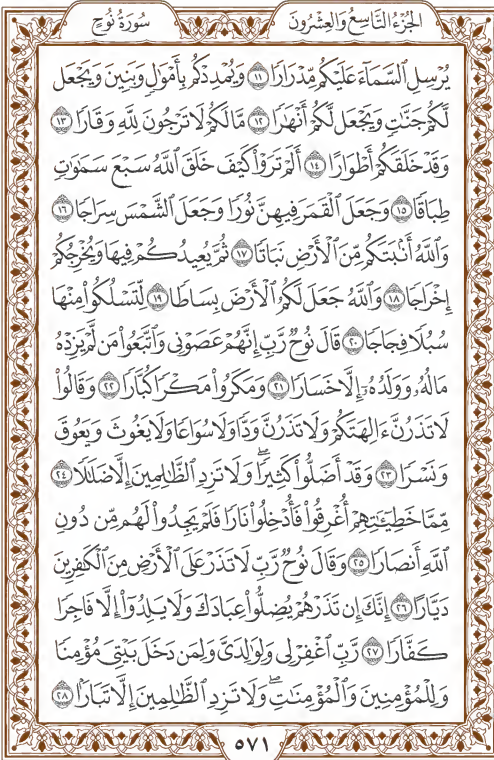 الجُزْءُ التَّاسِعُ وَالعِشْرُونَ سُورَةُ نُوحٍ
يُرْسِلِ ٱلسَّمَآءَ عَلَيْكُم مِّدْرَارًا ١١ وَيُمْدِدْكُم بِأَمْوَٰلٍ وَبَنِينَ وَيَجْعَل
لَّكُمْ جَنَّٰتٍ وَيَجْعَل لَّكُمْ أَنْهَٰرًا ١٢ مَّا لَكُمْ لَا تَرْجُونَ لِلَّهِ وَقَارًا ١٣
وَقَدْ خَلَقَكُمْ أَطْوَارًا ١٤ أَلَمْ تَرَوْا۟ كَيْفَ خَلَقَ ٱللَّهُ سَبْعَ سَمَٰوَٰتٍ
طِبَاقًا ١٥ وَجَعَلَ ٱلْقَمَرَ فِيهِنَّ نُورًا وَجَعَلَ ٱلشَّمْسَ سِرَاجًا ١٦
وَٱللَّهُ أَنۢبَتَكُم مِّنَ ٱلْأَرْضِ نَبَاتًا ١٧ ثُمَّ يُعِيدُكُمْ فِيهَا وَيُخْرِجُكُمْ
إِخْرَاجًا ١٨ وَٱللَّهُ جَعَلَ لَكُمُ ٱلْأَرْضَ بِسَاطًا ١٩ لِّتَسْلُكُوا۟ مِنْهَا
سُبُلًا فِجَاجًا ٢٠ قَالَ نُوحٌ رَّبِّ إِنَّهُمْ عَصَوْنِى وَٱتَّبَعُوا۟ مَن لَّمْ يَزِدْهُ
مَالُهُۥ وَوَلَدُهُۥٓ إِلَّا خَسَارًا ٢١ وَمَكَرُوا۟ مَكْرًا كُبَّارًا ٢٢ وَقَالُوا۟
لَا تَذَرُنَّ ءَالِهَتَكُمْ وَلَا تَذَرُنَّ وَدًّا وَلَا سُوَاعًا وَلَا يَغُوثَ وَيَعُوقَ
وَنَسْرًا ٢٣ وَقَدْ أَضَلُّوا۟ كَثِيرًا ۖ وَلَا تَزِدِ ٱلظَّٰلِمِينَ إِلَّا ضَلَٰلًا ٢٤
مِّمَّا خَطِيٓـَٰٔتِهِمْ أُغْرِقُوا۟ فَأُدْخِلُوا۟ نَارًا فَلَمْ يَجِدُوا۟ لَهُم مِّن دُونِ
ٱللَّهِ أَنصَارًا ٢٥ وَقَالَ نُوحٌ رَّبِّ لَا تَذَرْ عَلَى ٱلْأَرْضِ مِنَ ٱلْكَٰفِرِينَ
دَيَّارًا ٢٦ إِنَّكَ إِن تَذَرْهُمْ يُضِلُّوا۟ عِبَادَكَ وَلَا يَلِدُوٓا۟ إِلَّا فَاجِرًا
كَفَّارًا ٢٧ رَّبِّ ٱغْفِرْ لِى وَلِوَٰلِدَىَّ وَلِمَن دَخَلَ بَيْتِىَ مُؤْمِنًا
وَلِلْمُؤْمِنِينَ وَٱلْمُؤْمِنَٰتِ ۖ وَلَا تَزِدِ ٱلظَّٰلِمِينَ إِلَّا تَبَارًۢا ٢٨
٥٧١